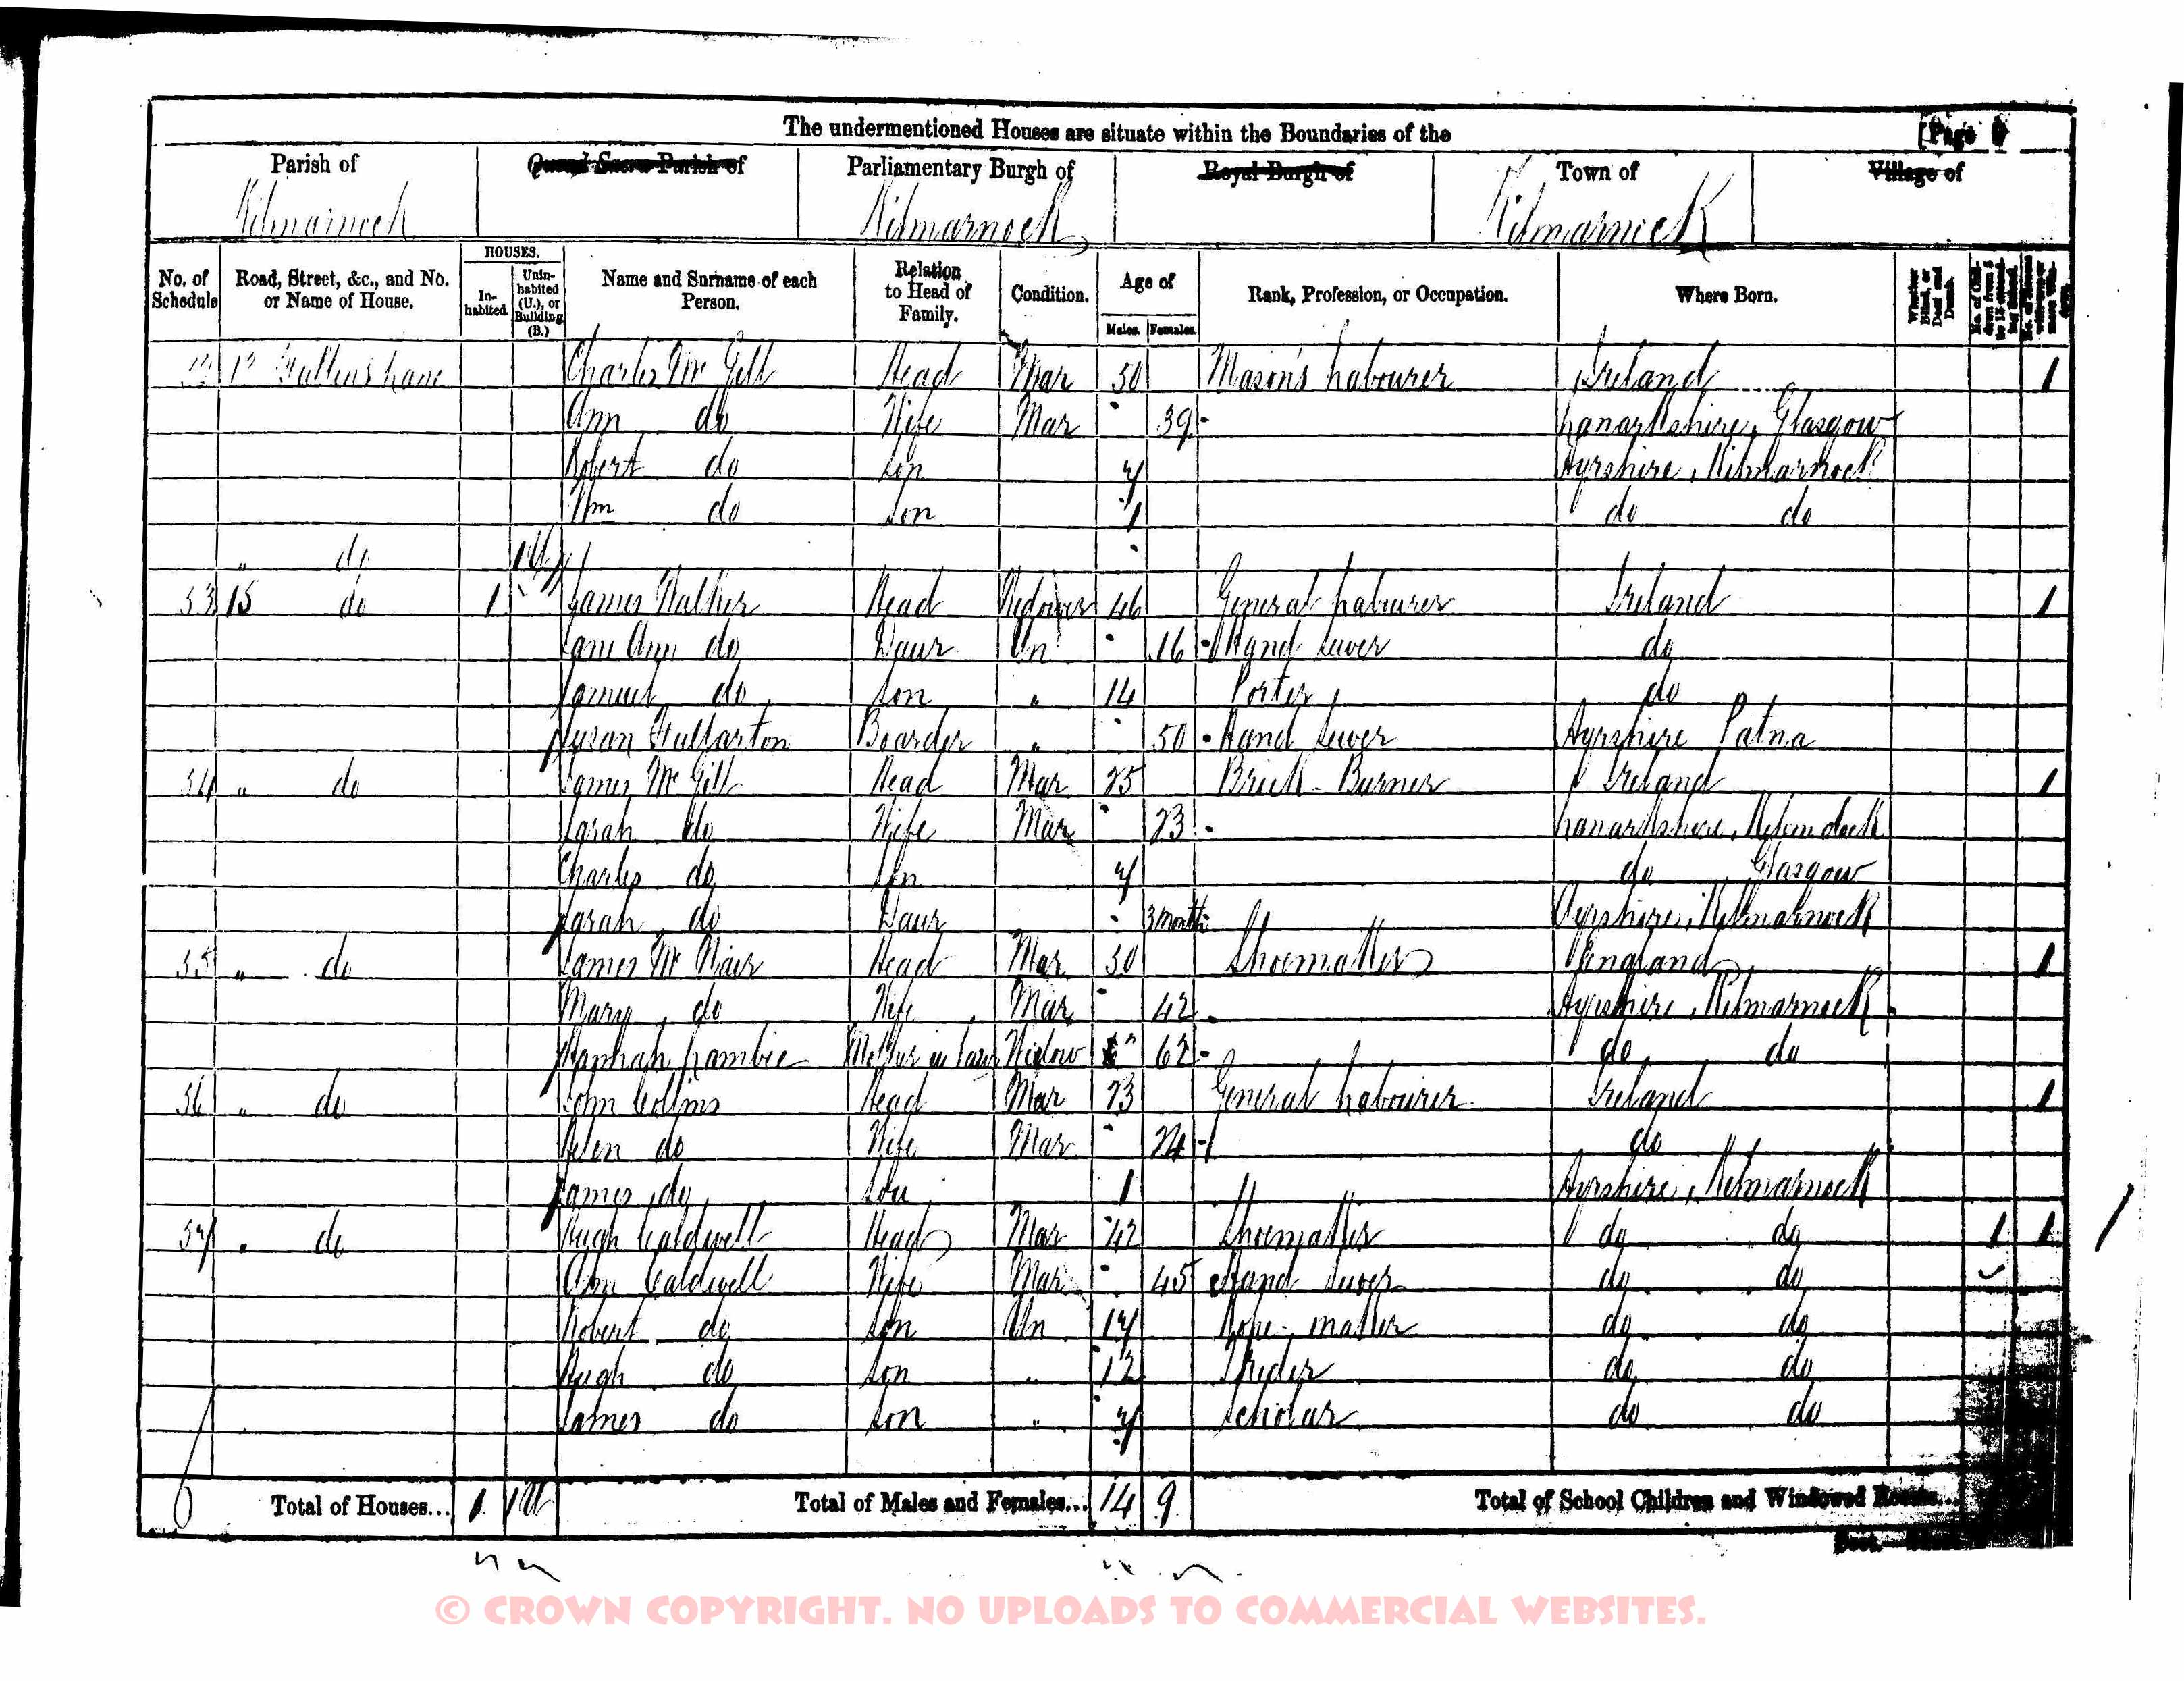 The undermentioned Houses are situate within the Boundaries of the [Page
Parish of Quoad Sacra Parish of Parliamentary Burgh of Royal Burgh of Town of Village of
Kilmarnock Kilmarnock Kilmarnock
No. of Schedule Road, Street, &c., and No. or Name of House. HOUSES. In-habited. Unin-habited (U.), or Building (B.) Name and Surname of each Person. Relation to Head of Family. Condition. Age of Males. Females. Rank, Profession, or Occupation. Where Born. Whether Blind, or Deaf and Dumb.
Lane Charles Mc Gill Head Mar 50 Mason's Labourer Ireland 1
Ann do Wife Mar 39 Lanarkshire, Glasgow
Robert do Son 7 Ayrshire, Kilmarnock
Wm do Son 1 do do
" do 1 U
33 15 do 1 James Walker Head Widower 46 General Labourer Ireland 1
Jane Ann do Daur Un 16 Hand Sewer do
Samuel do Son " 14 Porter do
Susan Fullarton Boarder " 50 Hand Sewer Ayrshire Patna
34 " do James Mc Gill Head Mar 25 Brick Burner Ireland 1
Sarah do Wife Mar 23 Lanarkshire,
Charles do Son 7 do Glasgow
Sarah do Daur 3 months Ayrshire, Kilmarnock
35 " do James Mc Nair Head Mar 30 Shoemaker England 1
Mary do Wife Mar 42 Ayrshire, Kilmarnock
Hannah Lambie Mother in Law Widow 62 do do
36 " do John Collins Head Mar 23 General Labourer Ireland 1
Helen do Wife Mar 24 do
James do Son 1 Ayrshire, Kilmarnock
37 " do Hugh Caldwell Head Mar 42 Shoemaker do do 1 1
Ann Caldwell Wife Mar 45 Hand Sewer do do
Robert do Son Un 17 Rope-maker do do
Hugh do Son " 12 do do
James do Son " 7 Scholar do do
Total of Houses... 1 1U Total of Males and Females... 14 9 Total of School Children and Windowed Rooms...
© CROWN COPYRIGHT. NO UPLOADS TO COMMERCIAL WEBSITES.